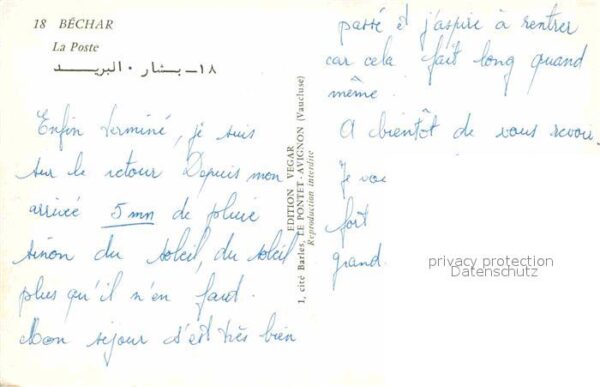 18 BÉCHAR
La Poste
١٨ - بشار • البريد
Enfin terminé, je suis
sur le retour Depuis mon
arrivée 5mn de pluie
sinon du soleil, du soleil
plus qu'il n'en faut.
Mon sejour s'est très bien
EDITION VEGAR
1, cité Barles, LE PONTET-AVIGNON (Vaucluse)
Reproduction interdite
passé et j'aspire à rentrer
car cela fait long quand
même.
A bientôt de vous revoir.
Je
fort
grand.
privacy protection
Datenschutz